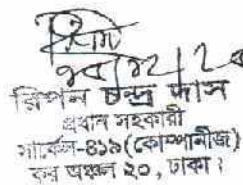 রিপন চন্দ্র দাস
প্রধান সহকারী
সার্কেল-৪১৯(কোম্পানীজ)
কর অঞ্চল ২০, ঢাকা।